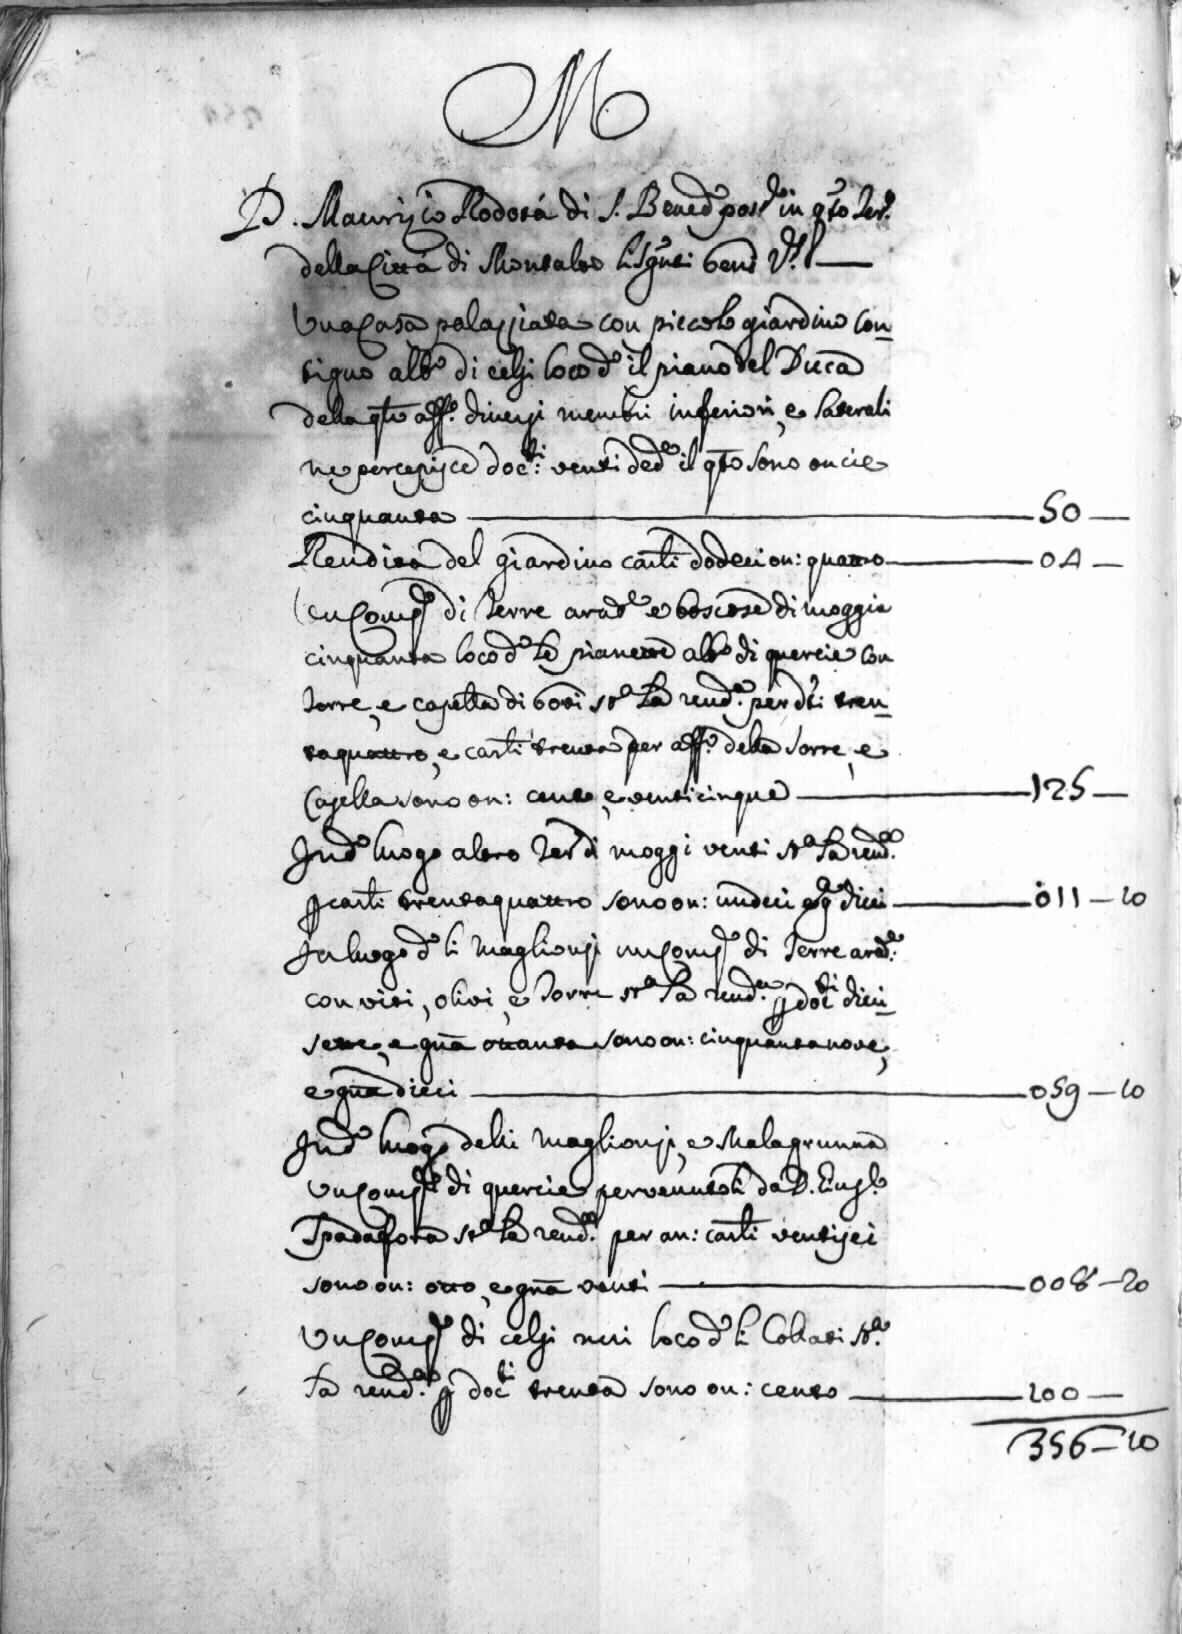 M
D. Maurizio Rodotà di S. Bened.º pos.de in q.sto Ter.º
della Città di Montalto li seg.nti beni V.t
Una Casa palazziata con piccolo giardino con-
tiguo alb.º di celzi loco d.º il piano del Duca
della q.le aff.º diversi membri inferiori, e laterali
ne percepisce doc.ti: venti ded.e il q.to sono oncie
cinquanta 50
Rendita del giardino carli dodeci on: quattro 04
Un Comp.º di Terre arat.e e boscose di moggia
cinquanta loco d.º le pianette alb.º di quercie con
torre, e capella di bovi st.a la rend.a per d.ti tren-
taquattro, e carli trenta per aff.º della torre, e
Capella sono on: cento, e venticinque 125
In d.º luogo altro Ter.º di moggi venti st.a la rend.a
p carli trentaquattro sono on: undeci e g.a dieci 011-10
In luogo d.º li Maglionzi un Comp.º di Terre arat.e
con viti, olivi, e torre st.a la rend.a p doc.ti dieci-
sette, e gna ottanta sono on: cinquantanove,
e gna dieci 059-10
In d.º luogo delli Maglionzi, e Malagrunna
Un Comp.º di quercie pervenutoli da D. Eus.º
Spadafora st.a la rend.a per an: carli ventisei
sono on: otto, e gna venti 008-20
Un Comp.º di celzi neri loco d.º li Collati st.a
la rend.a p doc.ti trenta sono on: cento 100
356-10